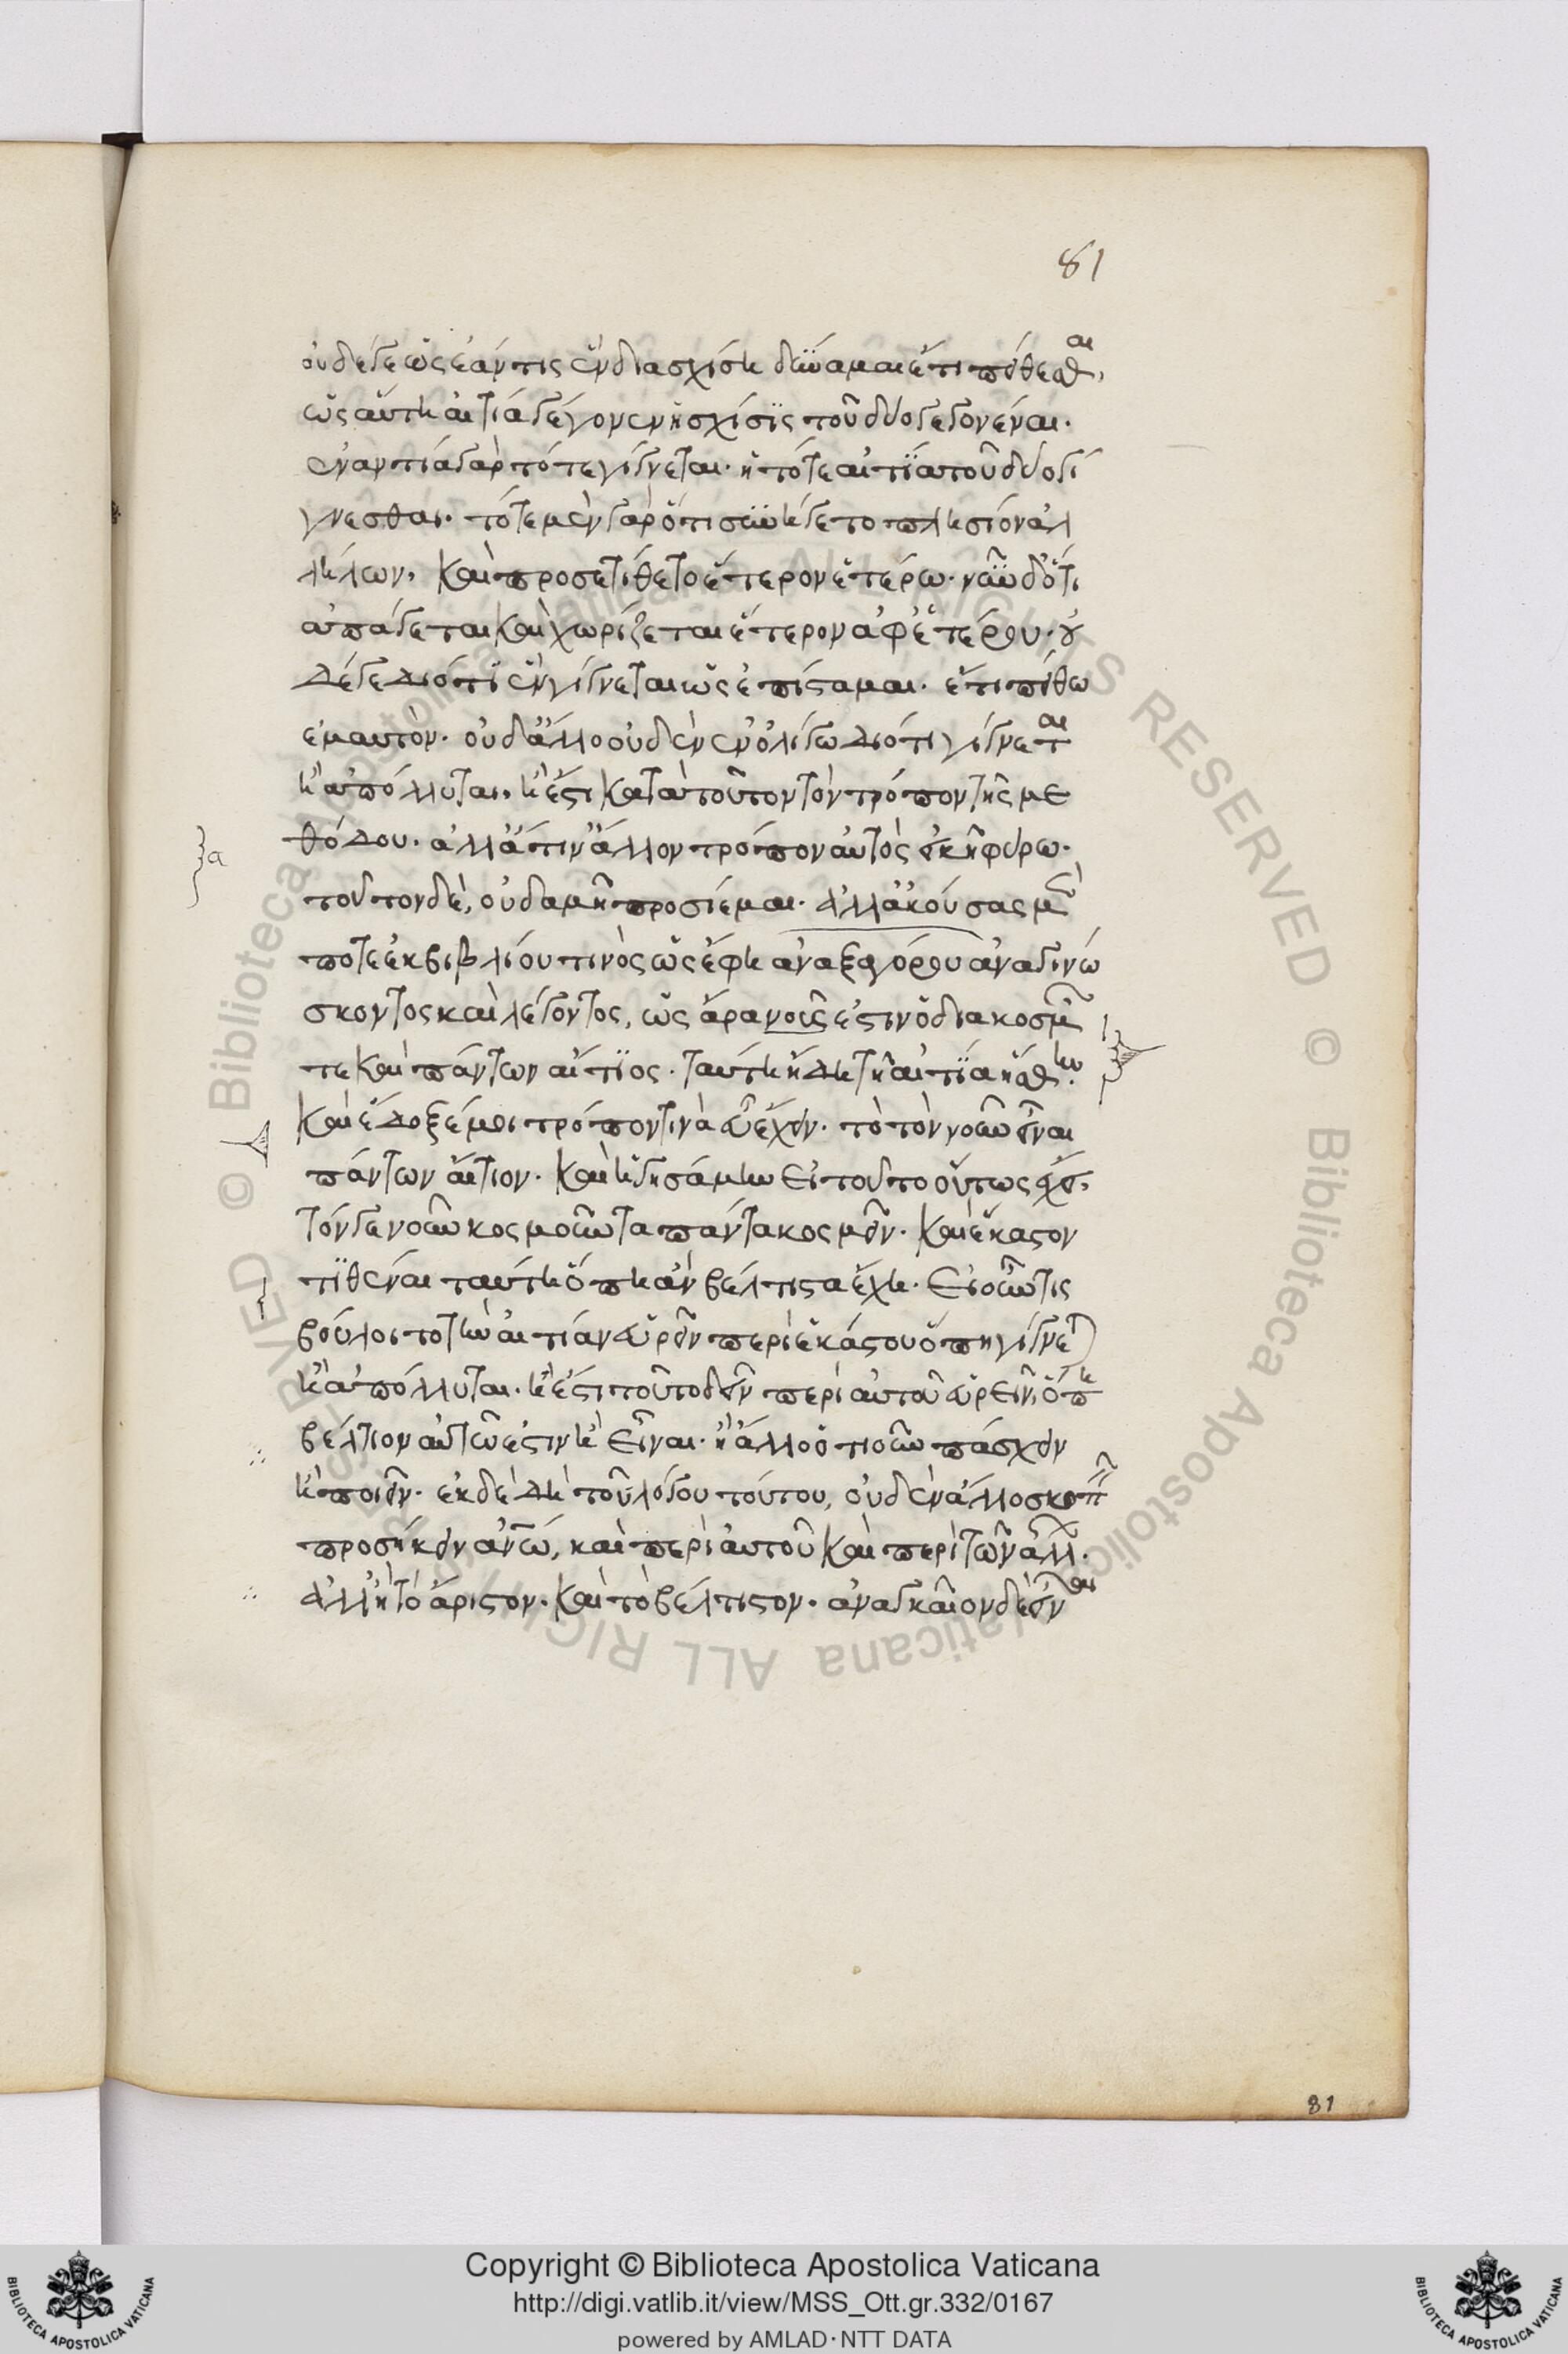 81
οὐδέ γε ὡς ἐάν τις ἓν διασχίση δύναμαι ἔτι πείθεσθαι,
ὡς αὕτη αἰτία γέγονεν ἡ σχίσις τοῦ δύο γεγονέναι.
ἐναντία γὰρ τότε γίγνεται. ἢ τότε αἰτία τοῦ δύο γί
γνεσθαι. τότε μὲν γὰρ ὅτι συνήγετο πλησίον ἀλ
λήλων, καὶ προσετίθετο ἕτερον ἑτέρω. νῦν δ' ὅτι
ἀπάγεται καὶ χωρίζεται ἕτερον ἀφ' ἑτέρου. οὐ
δέ γε διότι ἓν γίγνεται ὡς ἐπίσταμαι. ἔτι πείθω
ἐμαυτόν. οὐδ' ἄλλο οὐδὲν ἑνὶ λόγω διότι γίγνεται
ἢ ἀπόλλυται, ἢ ἔστι κατὰ τοῦτον τὸν τρόπον τῆς με
θόδου. ἀλλά τιν' ἄλλον τρόπον αὐτὸς εἰκῆ φύρω.
τοῦτον δὲ, οὐδαμῆ προσίεμαι. ἀλλ' ἀκούσας μὲν
ποτε ἐκ βιβλίου τινὸς ὡς ἔφη ἀναξαγόρου ἀναγινώ
σκοντος καὶ λέγοντος, ὡς ἄρα νοῦς ἐστιν ὁ διακοσμῶν
τε καὶ πάντων αἴτιος. ταύτη δὴ τῆ αἰτία ἥσθην.
καὶ ἔδοξέ μοι τρόπον τινὰ εὖ ἔχειν. τὸ τὸν νοῦν εἶναι
πάντων αἴτιον. καὶ ἡγησάμην εἰ τοῦτο οὕτως ἔχει,
τόν γε νοῦν κοσμοῦντα πάντα κοσμεῖν. καὶ ἕκαστον
τιθέναι ταύτη ὅπη ἂν βέλτιστα ἔχη. εἰ οὖν τις
βούλοιτο τὴν αἰτίαν εὑρεῖν περὶ ἑκάστου ὅπη γίγνεται
ἢ ἀπόλλυται. ἢ ἔστι τοῦτο δεῖν περὶ αὐτοῦ εὑρεῖν, ὅπη
βέλτιον αὐτῶ ἐστιν ἢ εἶναι. ἢ ἄλλο ὁτιοῦν πάσχειν
ἢ ποιεῖν. ἐκ δὲ δὴ τοῦ λόγου τούτου, οὐδὲν ἄλλο σκοπεῖν
προσήκειν ἀνθρώπω, καὶ περὶ αὐτοῦ καὶ περὶ τῶν ἄλλων.
ἀλλ' ἢ τὸ ἄριστον. καὶ τὸ βέλτιστον. ἀναγκαῖον δὲ εἶναι
81
Copyright © Biblioteca Apostolica Vaticana
http://digi.vatlib.it/view/MSS_Ott.gr.332/0167
powered by AMLAD·NTT DATA